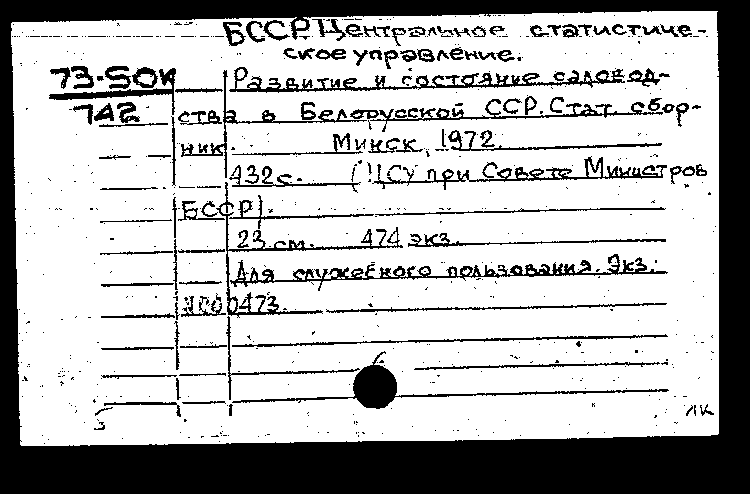 БССР. Центральное статистиче-
ское управление.
73-50к
742
Развитие и состояние садовод-
ства в Белорусской ССР. Стат. сбор-
ник. Минск, 1972.
432 с. (ЦСУ при Совете Министров
БССР).
23 см. 474 экз.
Для служебного пользования. Экз.
№000473.
5
лк